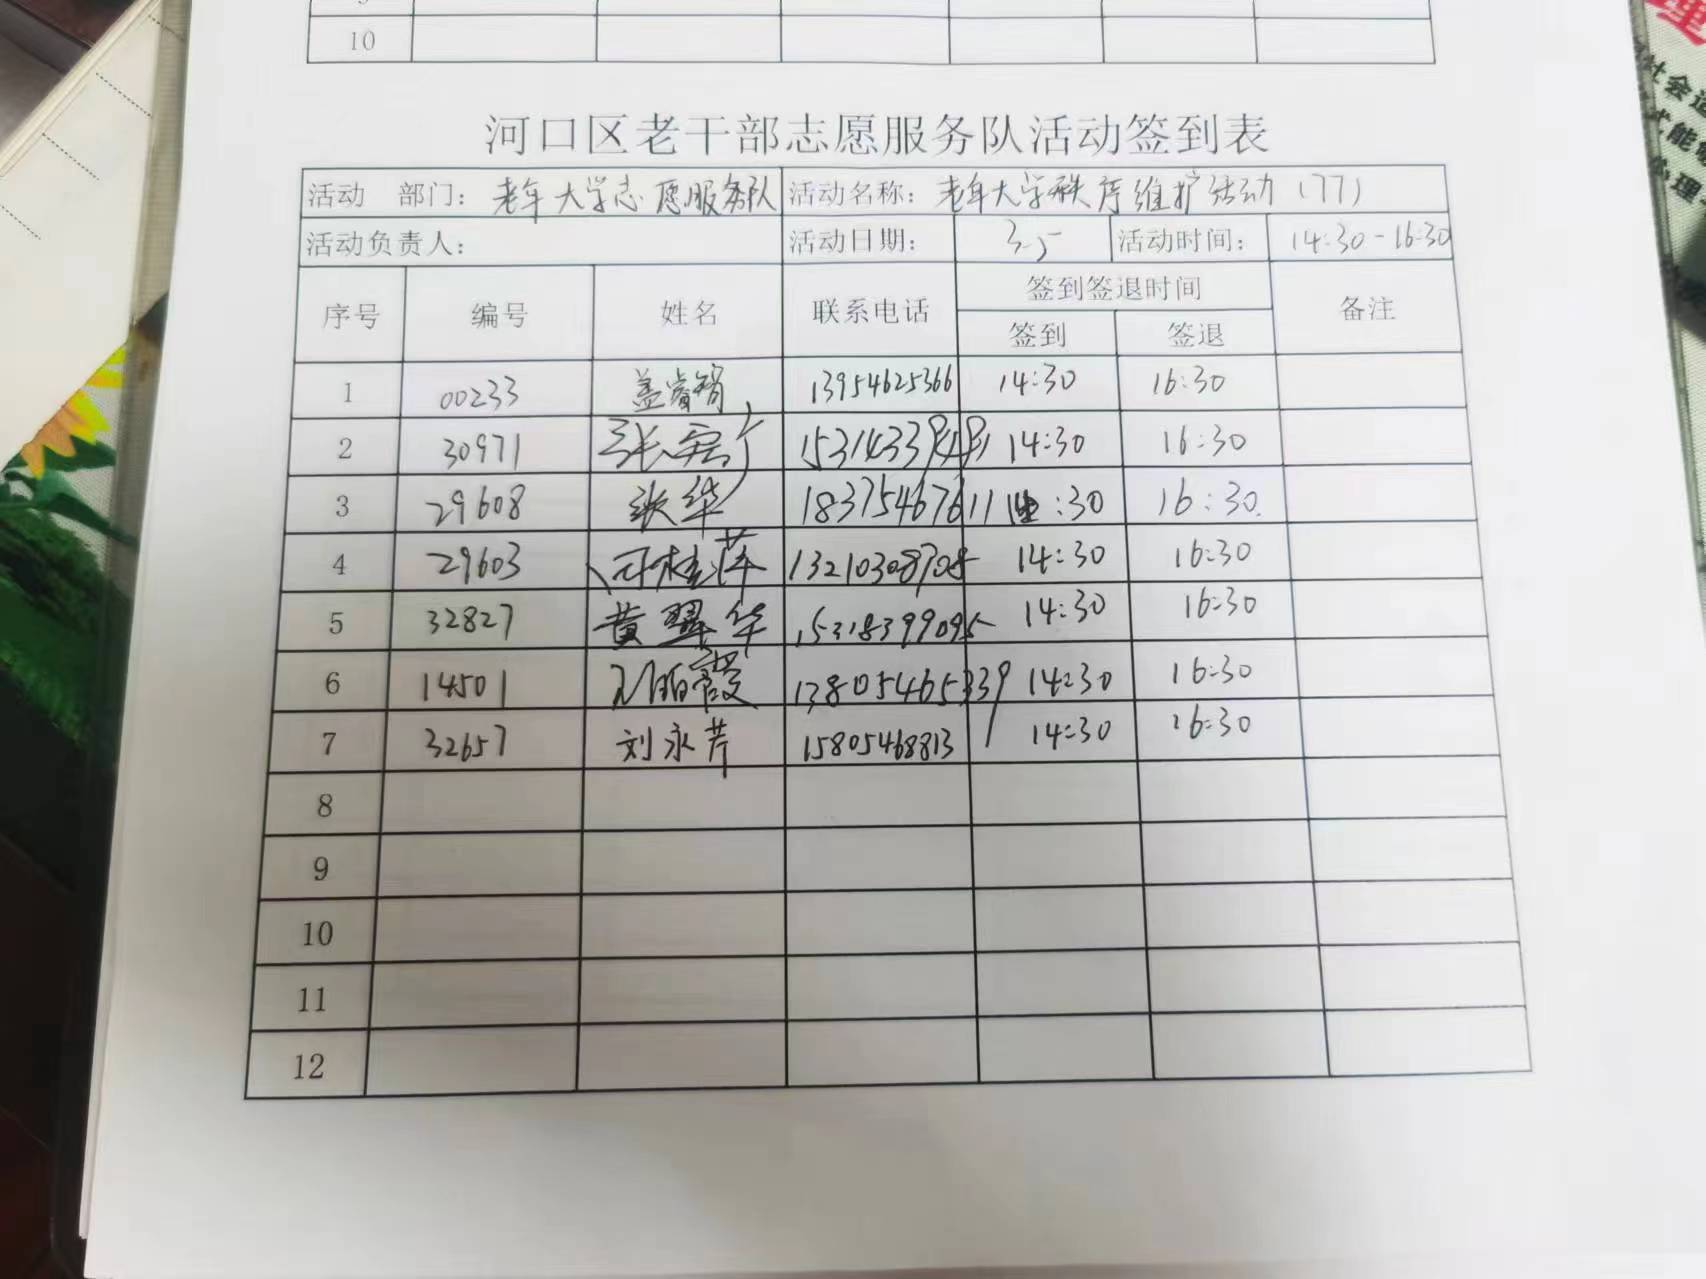 10
河口区老干部志愿服务队活动签到表
活动 部门: 老年大学志愿服务队 活动名称: 老年大学秩序维护活动(77)
活动负责人: 活动日期: 3.5 活动时间: 14:30-16:30
序号 编号 姓名 联系电话 签到签退时间 备注
签到 签退
1 00233 盖睿智 13954625366 14:30 16:30
2 30971 张宏 14:30 16:30
3 29608 张华 18375467611 :30 16:30
4 29603 桂萍 13210308705 14:30 16:30
5 32827 黄翠华 15318399095 14:30 16:30
6 14501 霞 13805465339 14:30 16:30
7 32657 刘永芹 15805468813 14:30 16:30
8
9
10
11
12
理
社会
能
心理